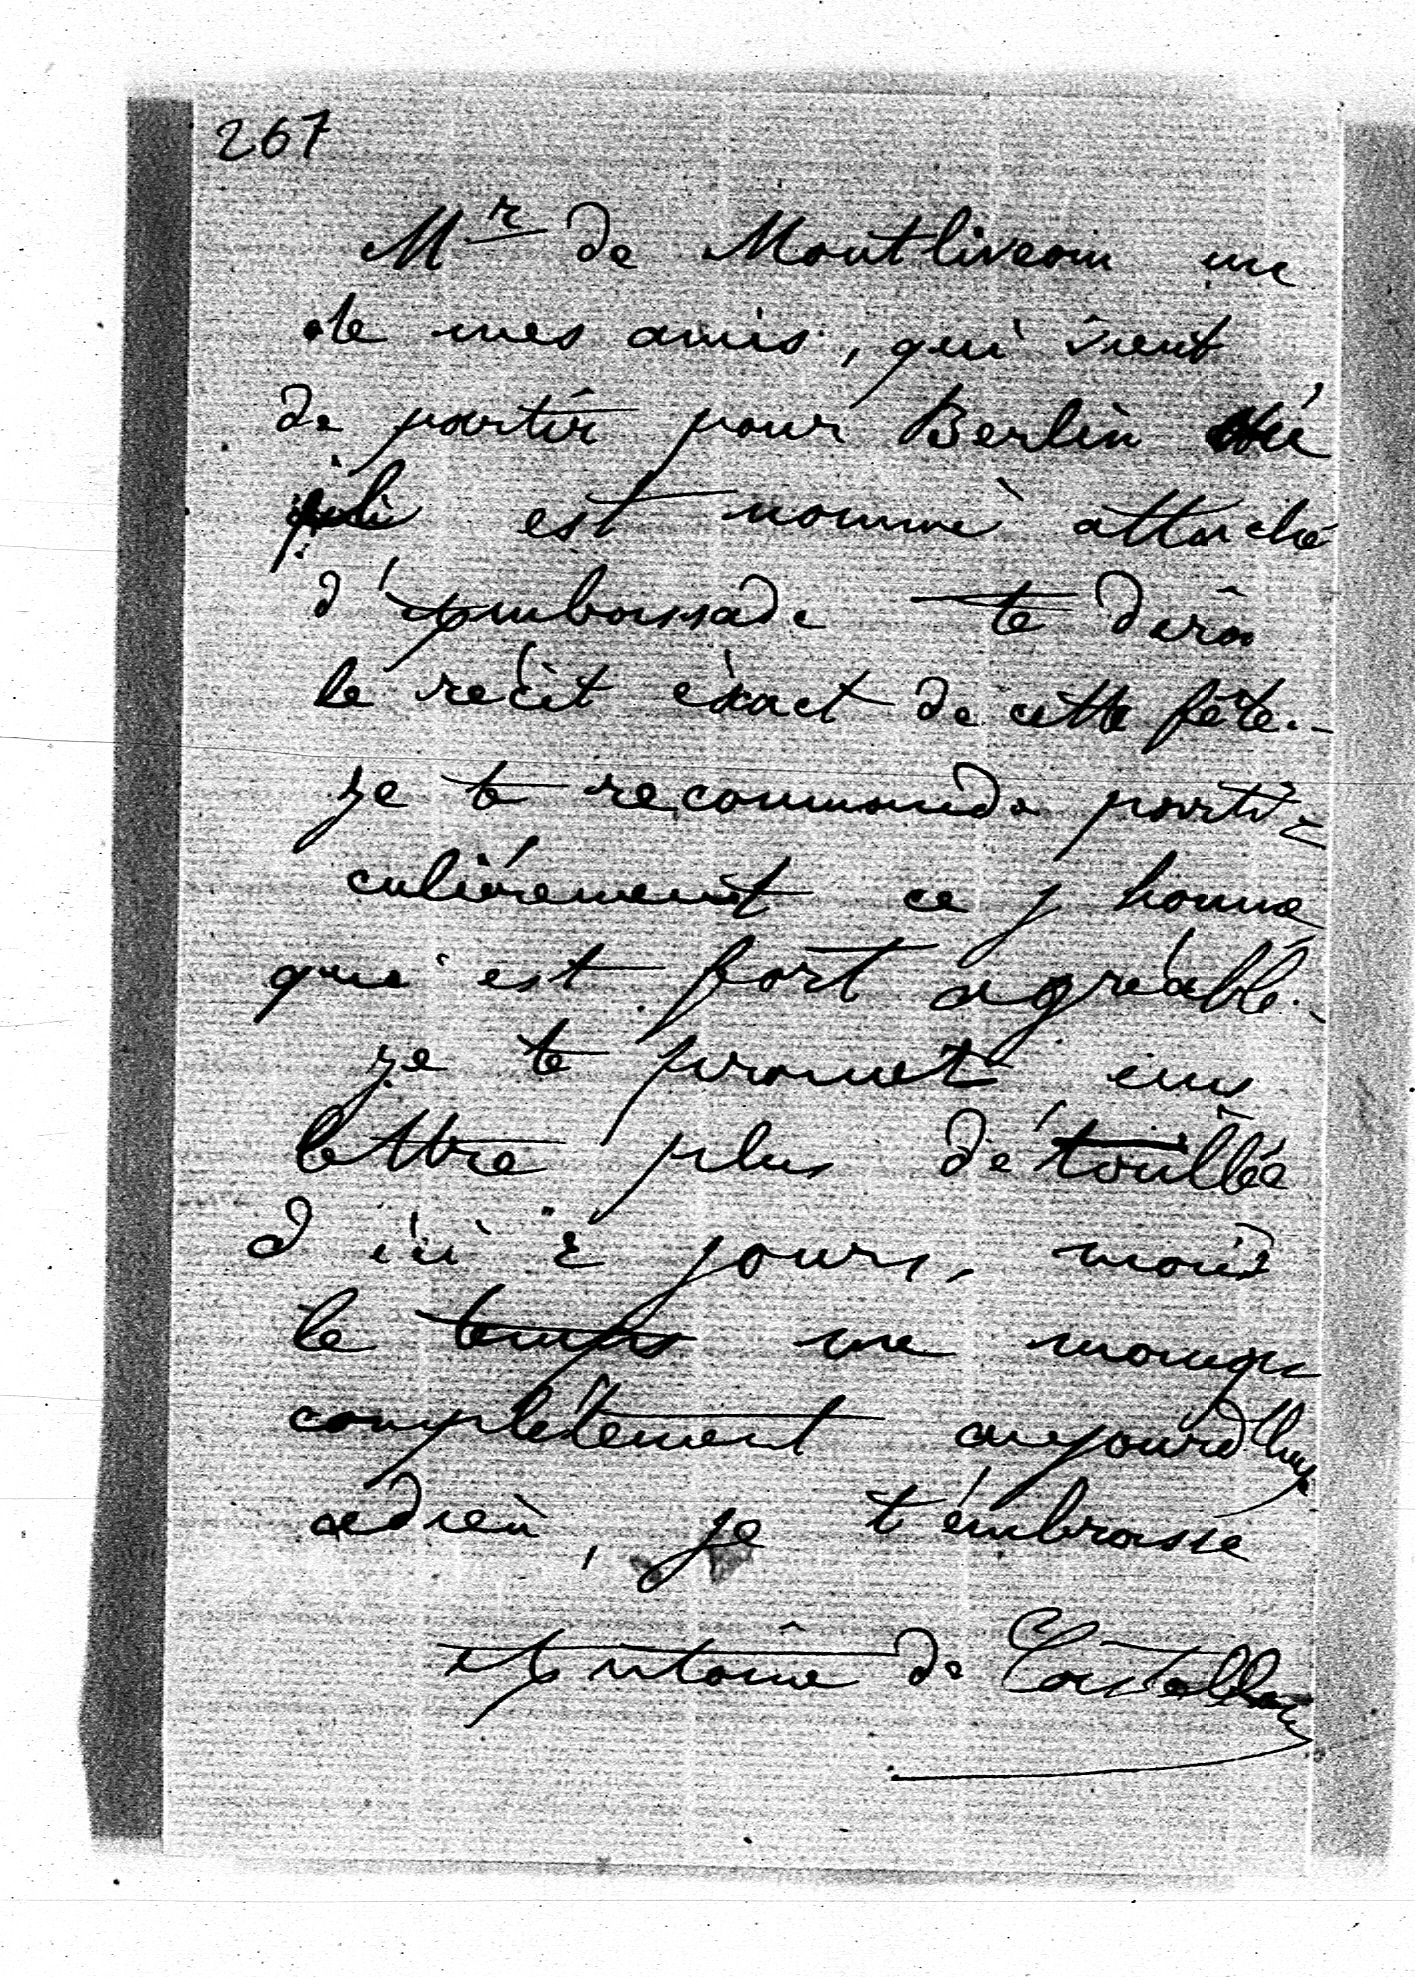 267
Mr de Montliveau un
de mes amis, qui vient
de partir pour Berlin où
il est nommé attaché
d'Ambassade te dira
le récit éxact de cette fête.-
je te recommande parti=
culiérement ce j homme
qui est fort agréable.-
je te promet une
lettre plus détaillée
d'ici 2 jours, mais
le temps me manque
complétement aujourd'hui
adieu, je t'embrasse
Antoine de Castellane